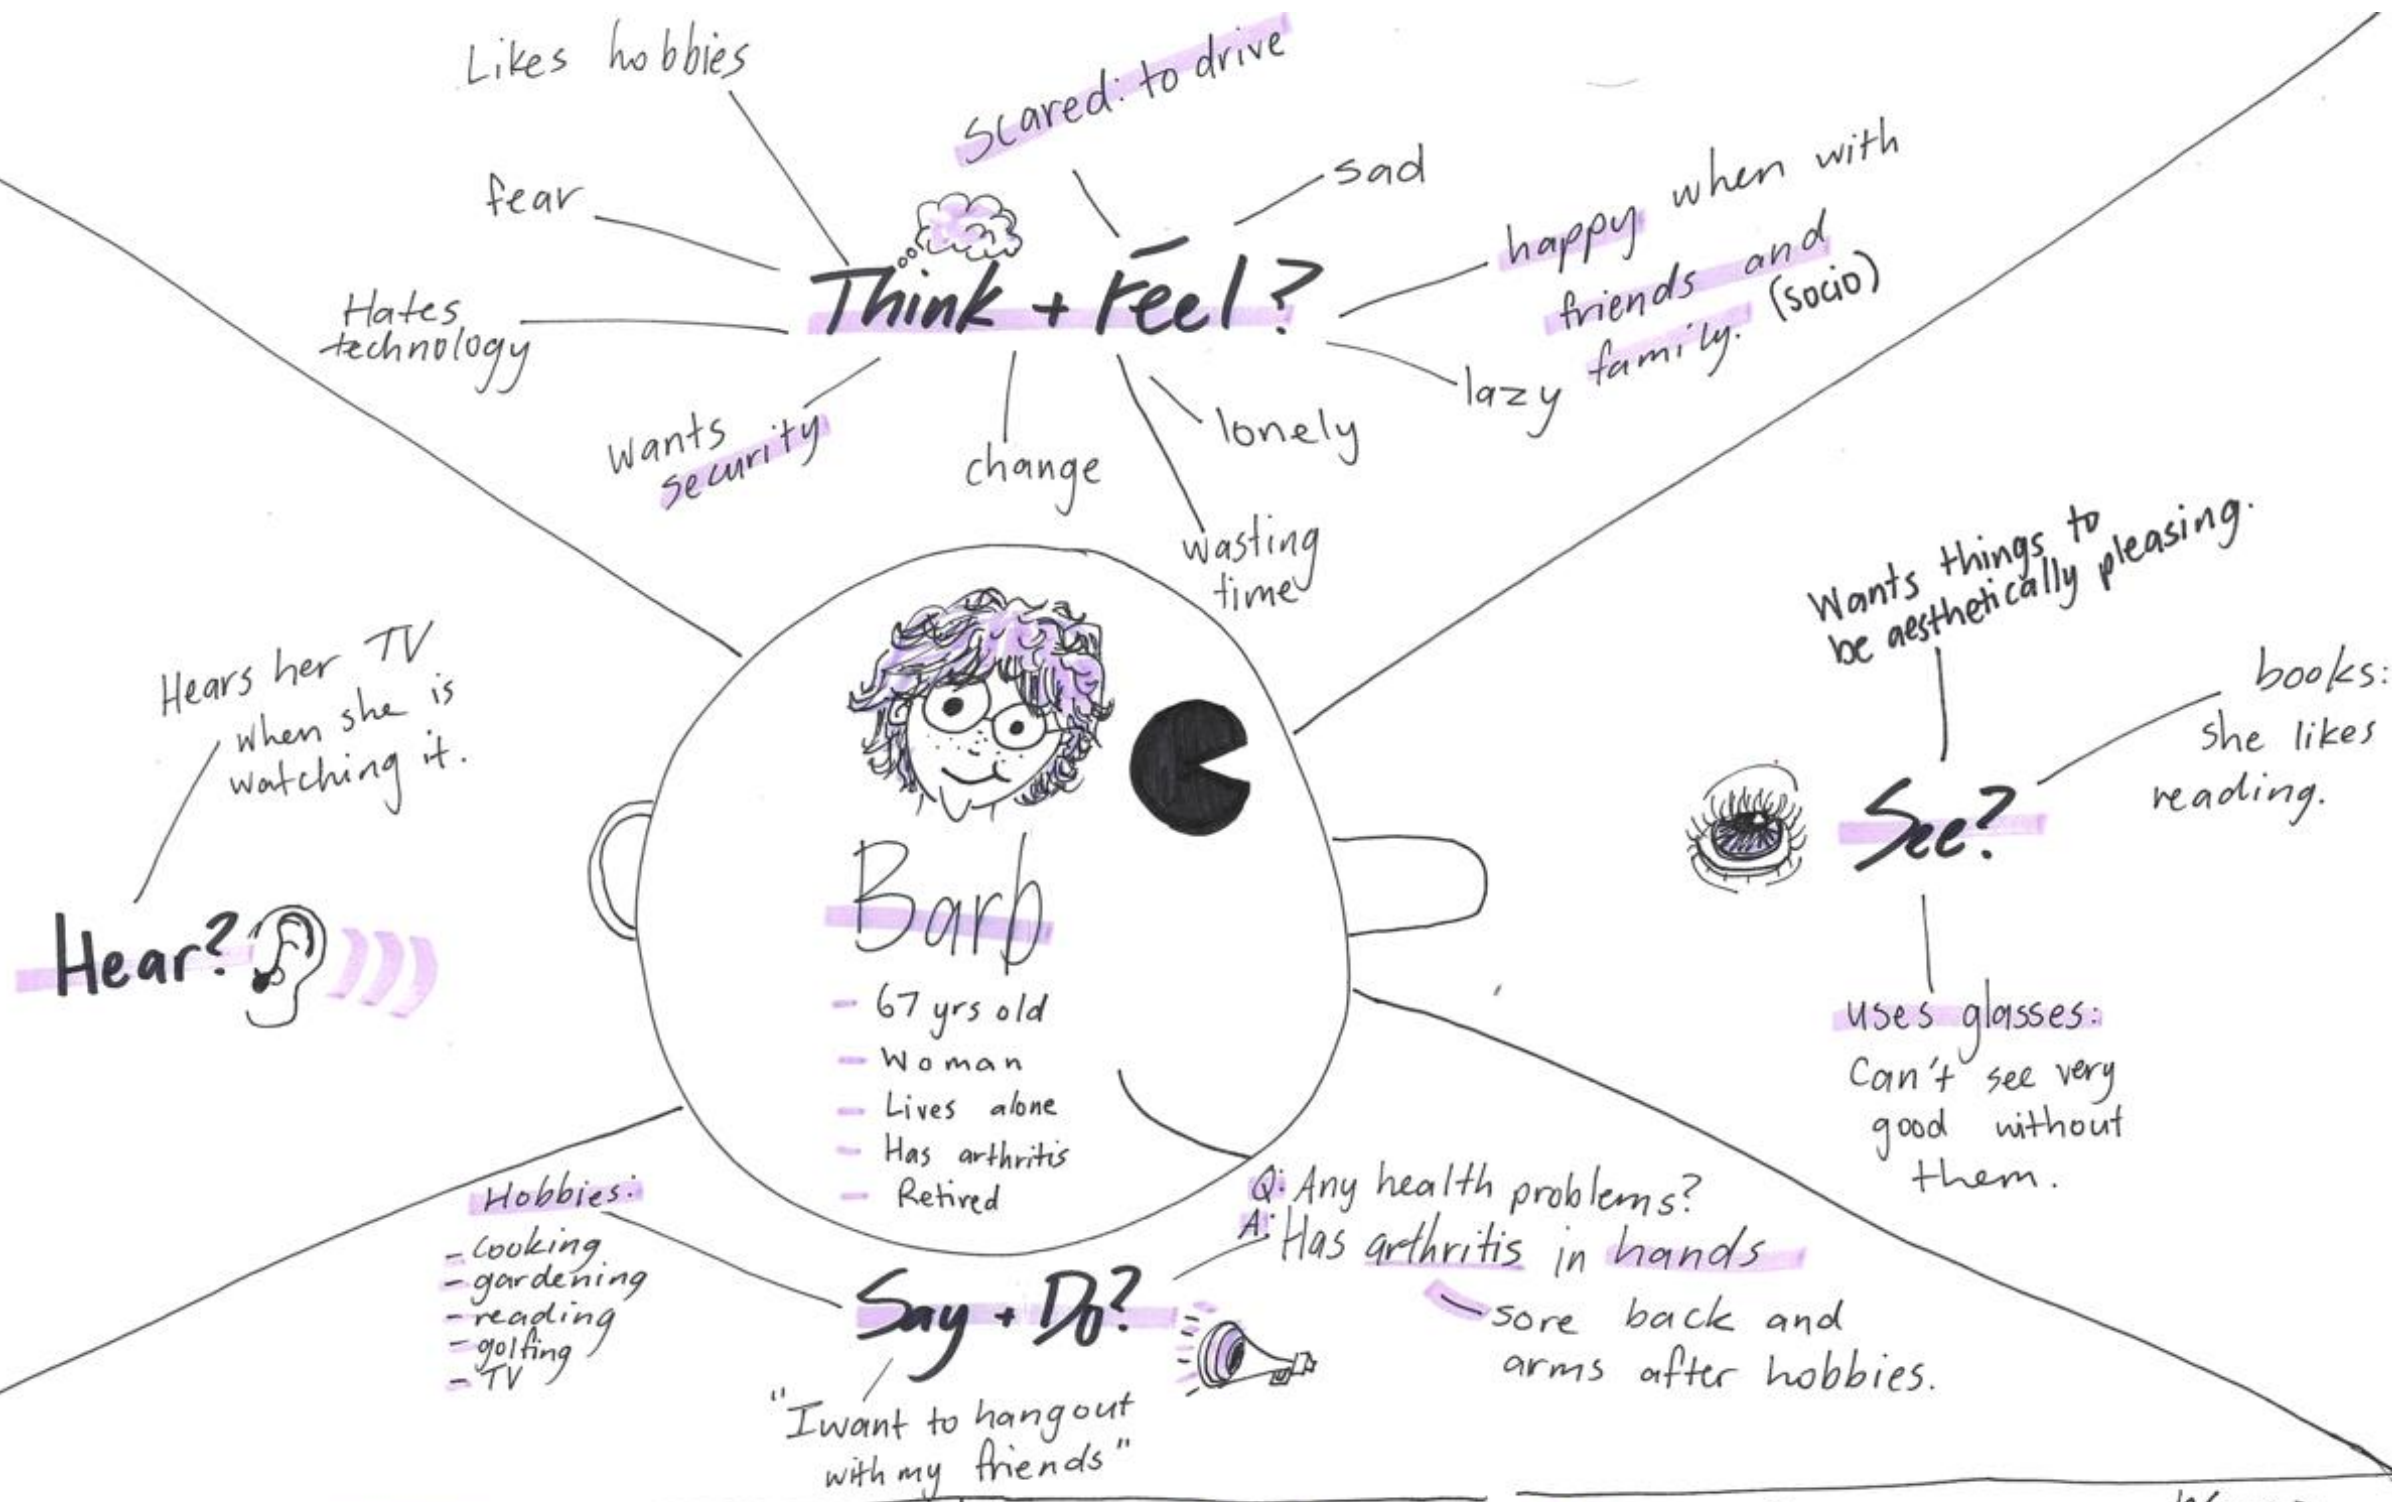 Likes hobbies
Scared: to drive
fear
sad
happy when with
friends and
family. (socio)
Think + Feel?
Hates
technology
lazy
wants
security
change
lonely
wasting
time
Wants things to
be aesthetically pleasing.
books:
she likes
reading.
Hears her TV
when she is
watching it.
See?
Hear?
Barb
- 67 yrs old
- Woman
- Lives alone
- Has arthritis
- Retired
uses glasses:
Can't see very
good without
them.
Hobbies:
- cooking
- gardening
- reading
- golfing
- TV
Q: Any health problems?
A: Has arthritis in hands
- sore back and
arms after hobbies.
Say + Do?
"I want to hang out
with my friends"